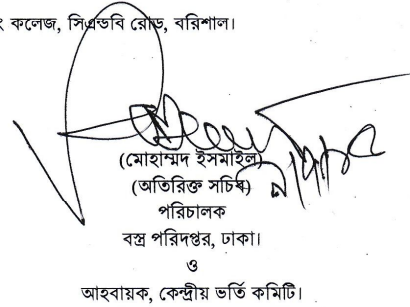 ং কলেজ, সিএন্ডবি রোড, বরিশাল।
(মোহাম্মদ ইসমাইল)
(অতিরিক্ত সচিব)
পরিচালক
বস্ত্র পরিদপ্তর, ঢাকা।
ও
আহবায়ক, কেন্দ্রীয় ভর্তি কমিটি।